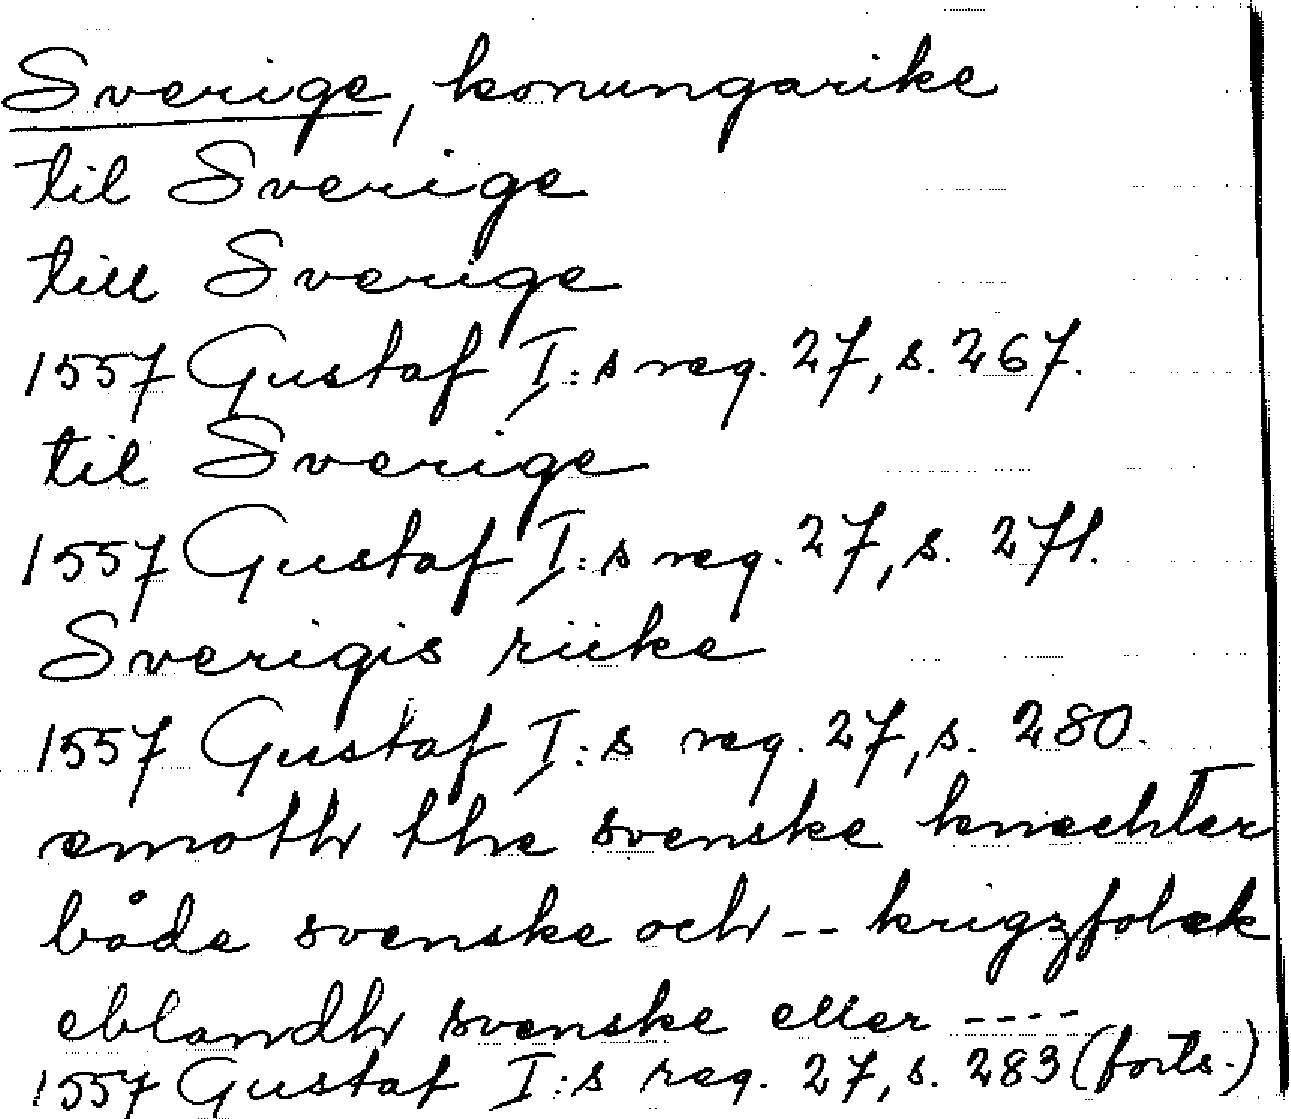 Sverige, konungarike
til Sverige
till Sverige
1557 Gustaf I:s reg. 27, s. 267.
til Sverige
1557 Gustaf I:s reg. 27, s. 271.
Sverigis riike
1557 Gustaf I:s reg. 27, s. 280.
emoth the svenske knechter
både svenske och -- krigzfolck
eblandh svenske eller ----
1557 Gustaf I:s reg. 27, s. 283 (forts.)